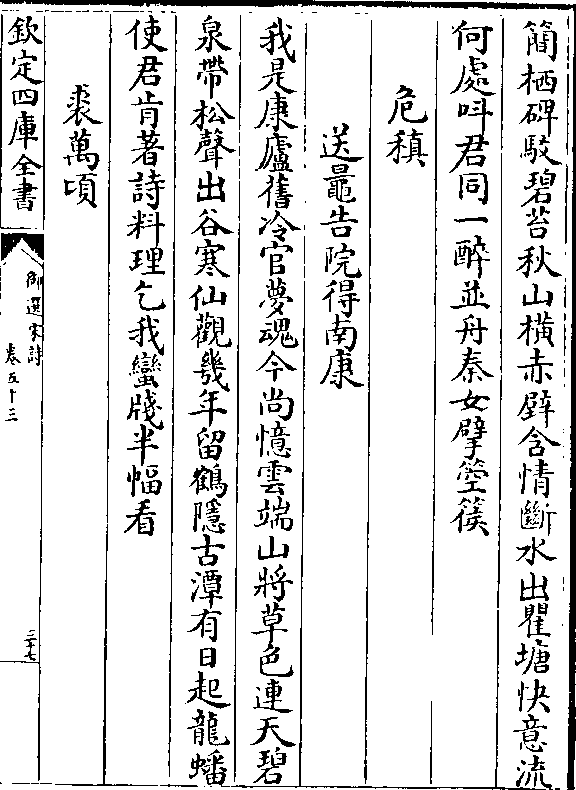 簡栖碑駮碧苔秋山横赤壁含情斷水出瞿塘快意流
何處呌君同一醉並舟秦女擘箜篌
危稹
送鼂告院得南康
我是康廬舊冷官夢魂今尚憶雲端山將草色連天碧
泉帶松聲出谷寒仙觀幾年留鶴隱古潭有日起龍蟠
使君肯著詩料理乞我蠻牋半幅看
裘萬頃
欽定四庫全書
御選宋詩
卷五十三
三十七